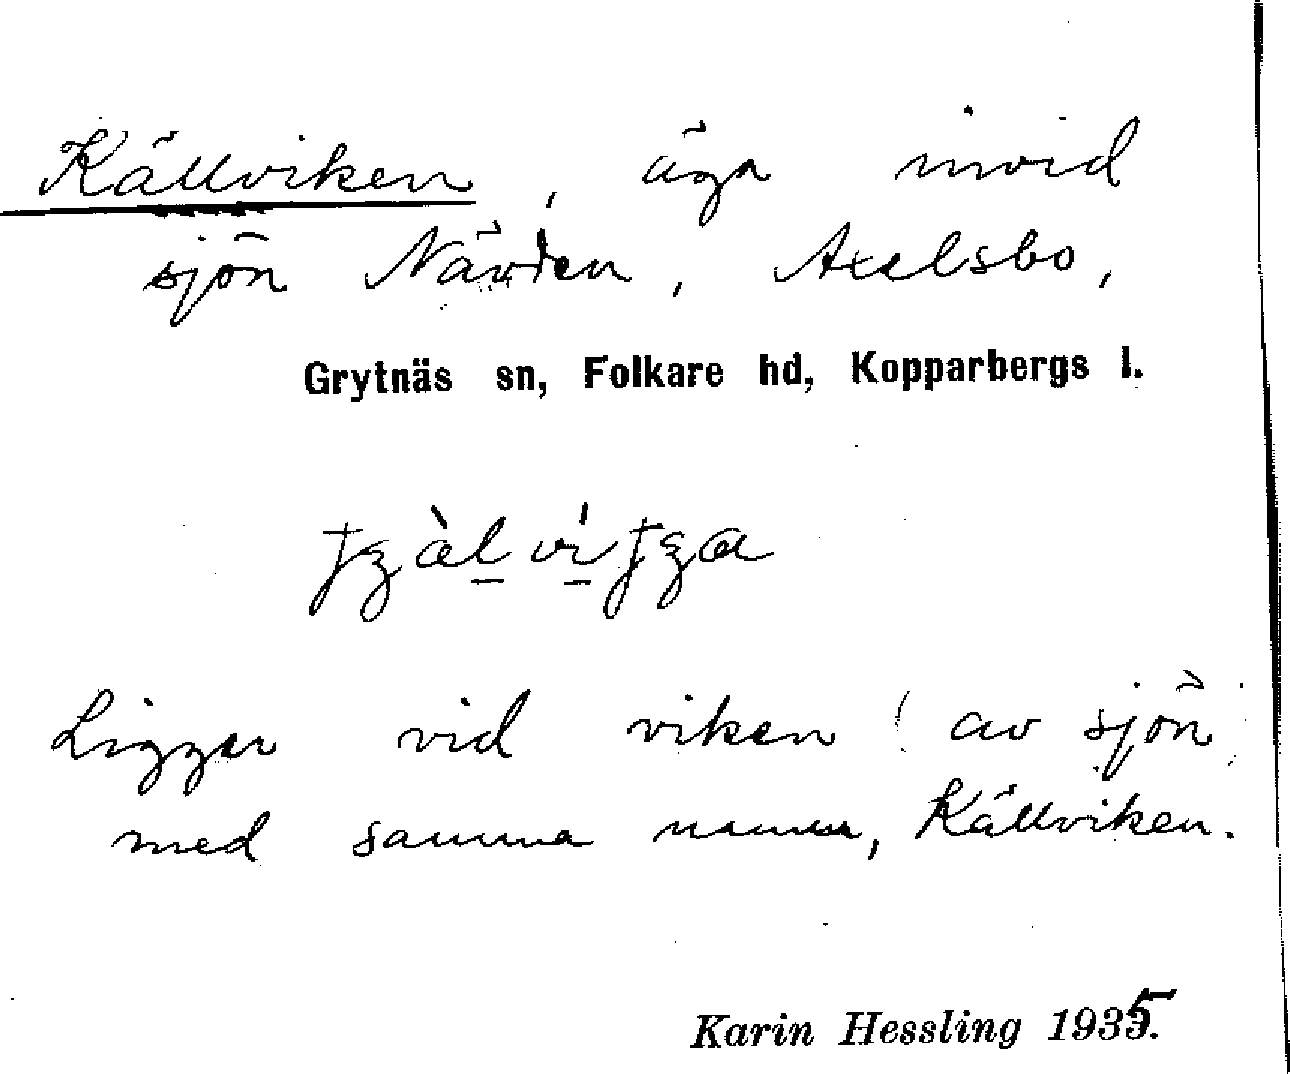 Källviken, äga invid
sjön Närden, Axelsbo,
Grytnäs sn, Folkare hd, Kopparbergs l.
Ligger vid viken (av sjön)
med samma namn, Källviken.
Karin Hessling 1935.